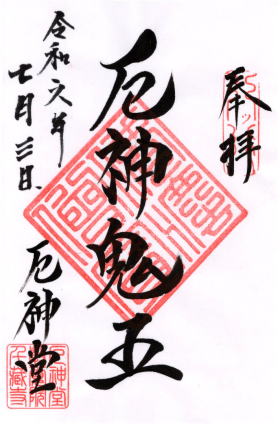 奉拝
厄神鬼王
令和六年
七月三日
厄神堂